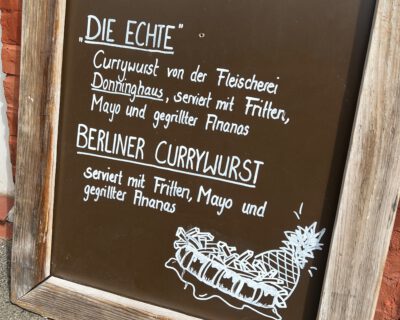 „DIE ECHTE“
Currywurst von der Fleischerei
Dönninghaus, serviert mit Fritten,
Mayo und gegrillter Ananas
BERLINER CURRYWURST
serviert mit Fritten, Mayo und
gegrillter Ananas